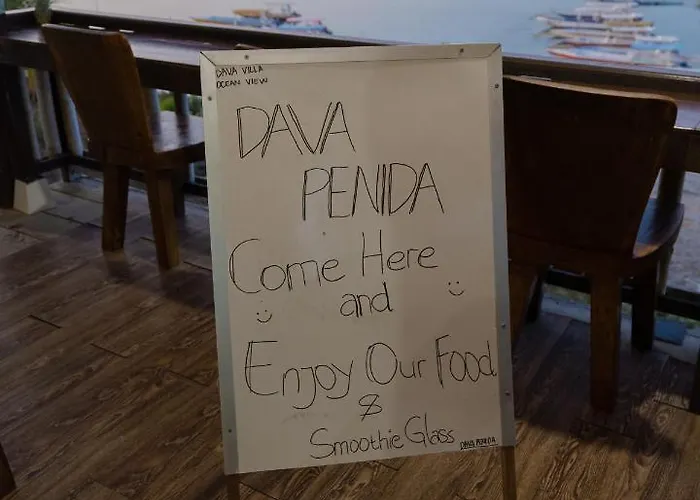 DAVA VILLA
OCEAN VIEW
DAVA
PENIDA
Come Here
and
Enjoy Our Food
&
Smoothie Glass
DAVA PENIDA